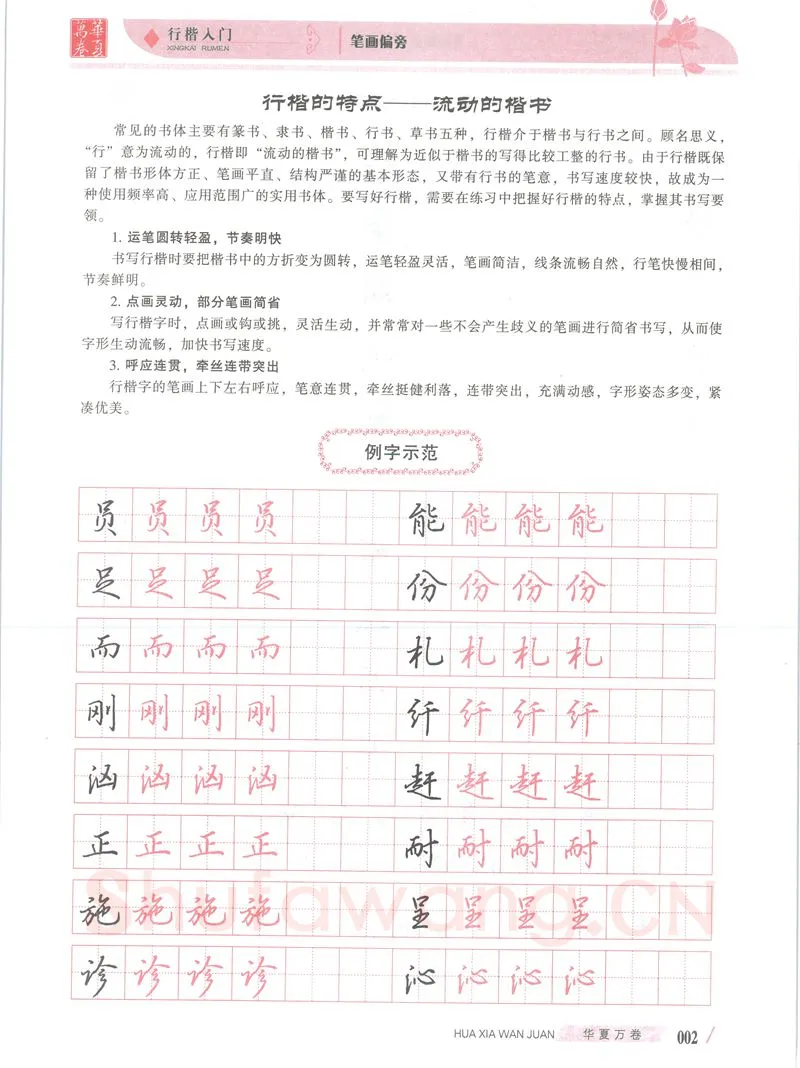 華夏
萬卷
行楷入门
XINGKAI RUMEN
笔画偏旁
行楷的特点——流动的楷书
常见的书体主要有篆书、隶书、楷书、行书、草书五种，行楷介于楷书与行书之间。顾名思义，
“行”意为流动的，行楷即“流动的楷书”，可理解为近似于楷书的写得比较工整的行书。由于行楷既保
留了楷书形体方正、笔画平直、结构严谨的基本形态，又带有行书的笔意，书写速度较快，故成为一
种使用频率高、应用范围广的实用书体。要写好行楷，需要在练习中把握好行楷的特点，掌握其书写要
领。
1. 运笔圆转轻盈，节奏明快
书写行楷时要把楷书中的方折变为圆转，运笔轻盈灵活，笔画简洁，线条流畅自然，行笔快慢相间，
节奏鲜明。
2. 点画灵动，部分笔画简省
写行楷字时，点画或钩或挑，灵活生动，并常常对一些不会产生歧义的笔画进行简省书写，从而使
字形生动流畅，加快书写速度。
3. 呼应连贯，牵丝连带突出
行楷字的笔画上下左右呼应，笔意连贯，牵丝挺健利落，连带突出，充满动感，字形姿态多变，紧
凑优美。
例字示范
员 员 员 员 能 能 能 能
足 足 足 足 份 份 份 份
而 而 而 而 札 札 札 札
刚 刚 刚 刚 纤 纤 纤 纤
涵 涵 涵 涵 赶 赶 赶 赶
正 正 正 正 耐 耐 耐 耐
施 施 施 施 呈 呈 呈 呈
诊 诊 诊 诊 沁 沁 沁 沁
Shufawang.CN
HUA XIA WAN JUAN 华夏万卷 002